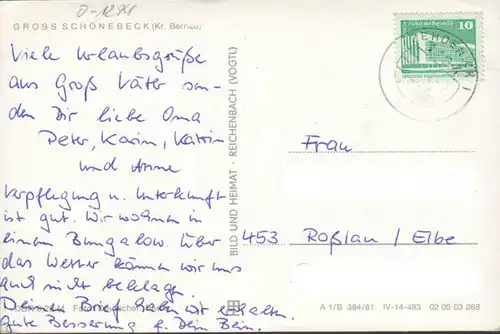 D-1294
GROSS SCHÖNEBECK (Kr. Bernau)
Viele Urlaubsgrüße
aus Groß Väter sen-
den Dir liebe Oma
Peter, Karin, Katrin
und Anne
Verpflegung u. Unterkunft
ist gut. Wir wohnen in
einem Bungalow. Über
das Wetter können wir uns
auch nicht beklagen.
Deinen Brief haben wir erhalten.
Gute Besserung f. Dein Bein.
BILD UND HEIMAT · REICHENBACH (VOGTL)
10
Frau
453 Roßlau / Elbe
A 1/B 384/81 IV-14-483 02 05 03 268